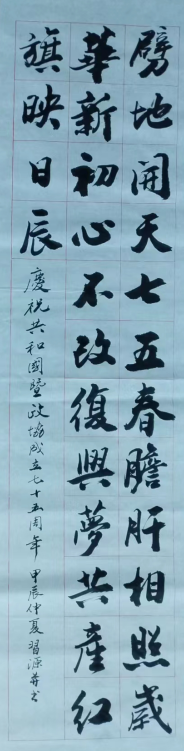 劈地開天七五春膽肝相照歲
華新初心不改復興夢共產紅
旗映日辰
慶祝共和國暨政協成立七十五周年 甲辰仲夏習源并书